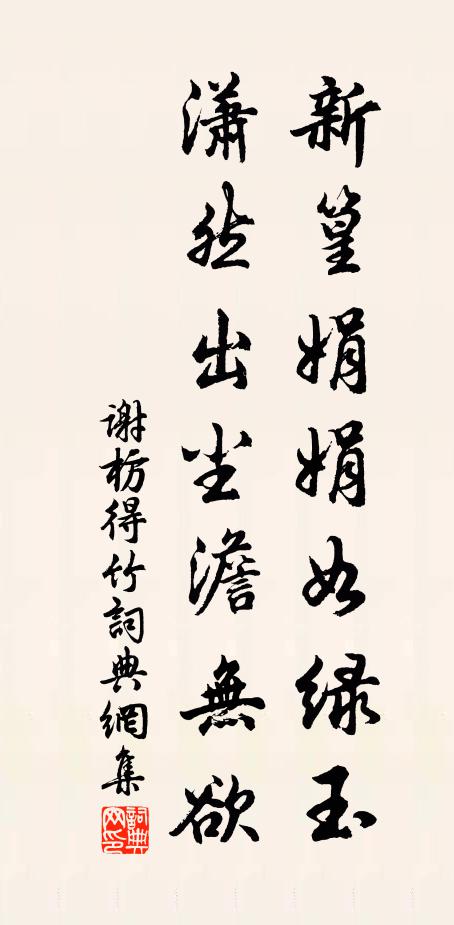 新篁娟娟如緑玉
瀟然出尘澹無欲
谢枋得竹詞典網集
詞典网印